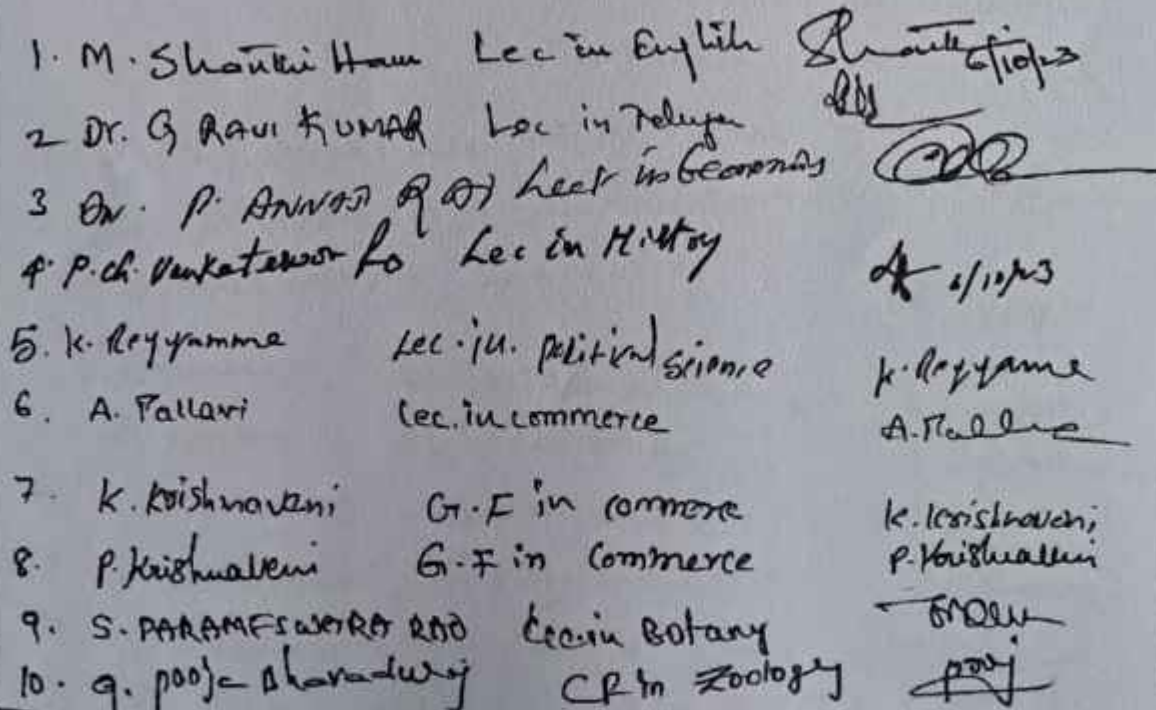 1. M. Shanthi Lec in English 6/10/23
2 Dr. G RAVI KUMAR Lec. in Telugu
3 Dr. P. ANNAJI RAO Lect in Economics
4. P.ch. Venkateswar Lec in History 6/10/23
5. K. Reyyamma Lec. in. political science K. Reyyama
6. A. Pallavi Lec. in commerce A.
7. K. Krishnaveni G.F in commerce K. Krishnaveni,
8. P. Krishnaveni G.F in Commerce P. Krishnaveni
9. S. PARAMESWARA RAO Lec. in Botany
10. G. pooja Bharadwaj in Zoology pooj